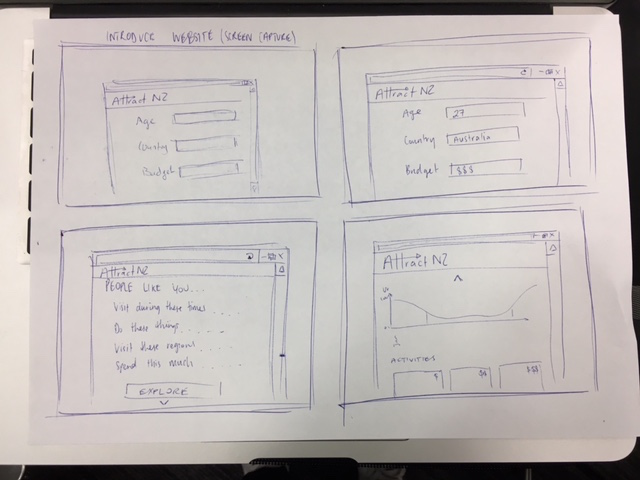 INTRODUCE WEBSITE (SCREEN CAPTURE)
Attract NZ
Age
Country
Budget
Attract NZ
Age 27
Country Australia
Budget $$$
Attract NZ
PEOPLE LIKE YOU...
Visit during these times....
Do these things......
Visit these regions....
Spend this much....
EXPLORE
Attract NZ
ACTIVITIES
$ $$ $$$